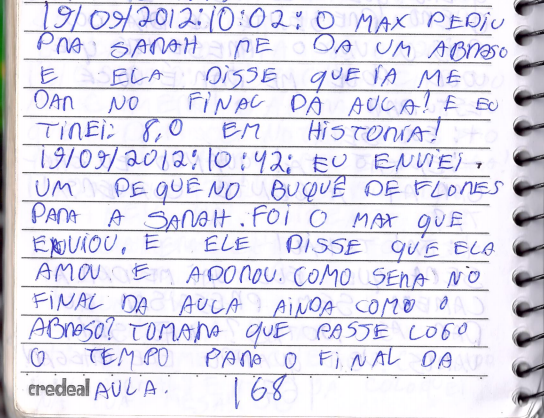 19/09/2012:10:02: O MAX PEDIU
PRA SARAH ME DA UM ABRASO
E ELA DISSE QUE IA ME
DAR NO FINAL DA AULA! E EU
TIREI: 8,0 EM HISTORIA!
19/09/2012:10:42: EU ENVIEI.
UM PEQUENO BUQUÊ DE FLORES
PARA A SARAH. FOI O MAX QUE
ENVIOU. E ELE DISSE QUE ELA
AMOU. E ADOROU. COMO SERA NO
FINAL DA AULA AINDA COMO O
ABRASO? TOMARA QUE PASSE LOGO
O TEMPO PARA O FINAL DA
credeal AULA. 168